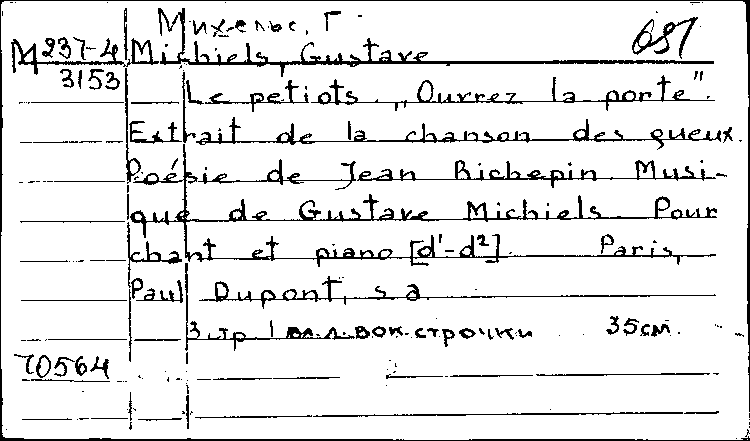 Михельс, Г.
М 237-4 Michiels, Gustave. 687
3153 Le petiots. „Ouvrez la porte".
Extrait de la chanson des gueux.
Poésie de Jean Richepin. Musi-
que de Gustave Michiels. Pour
chant et piano [d¹-d²]. Paris,
Paul Dupont, s.a.
3 стр. 1 вкл.л. вок. строчки 35см.
70564